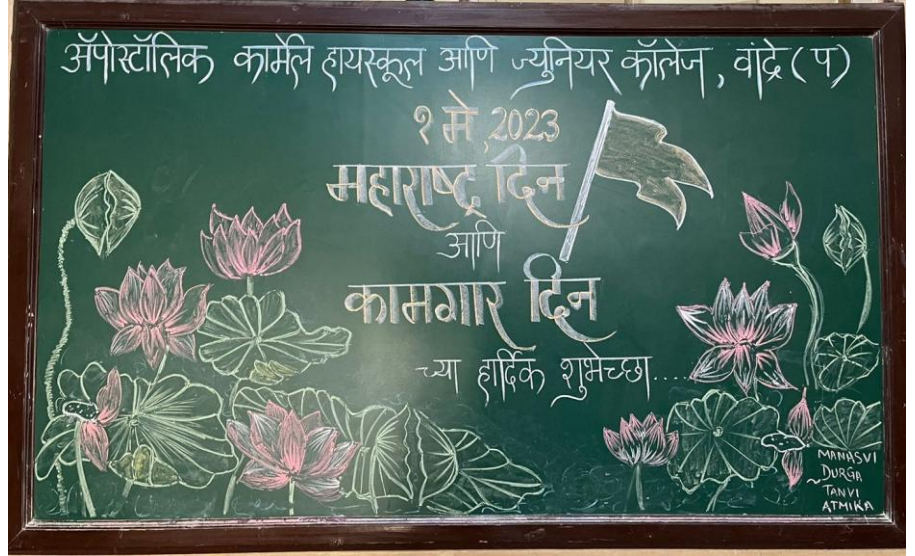 ॲपोस्टॉलिक कार्मेल हायस्कूल आणि ज्युनियर कॉलेज, वांद्रे (प)
१ मे, 2023
महाराष्ट्र दिन
आणि
कामगार दिन
च्या हार्दिक शुभेच्छा.....
MANASVI
DURGA
TANVI
ATMIKA